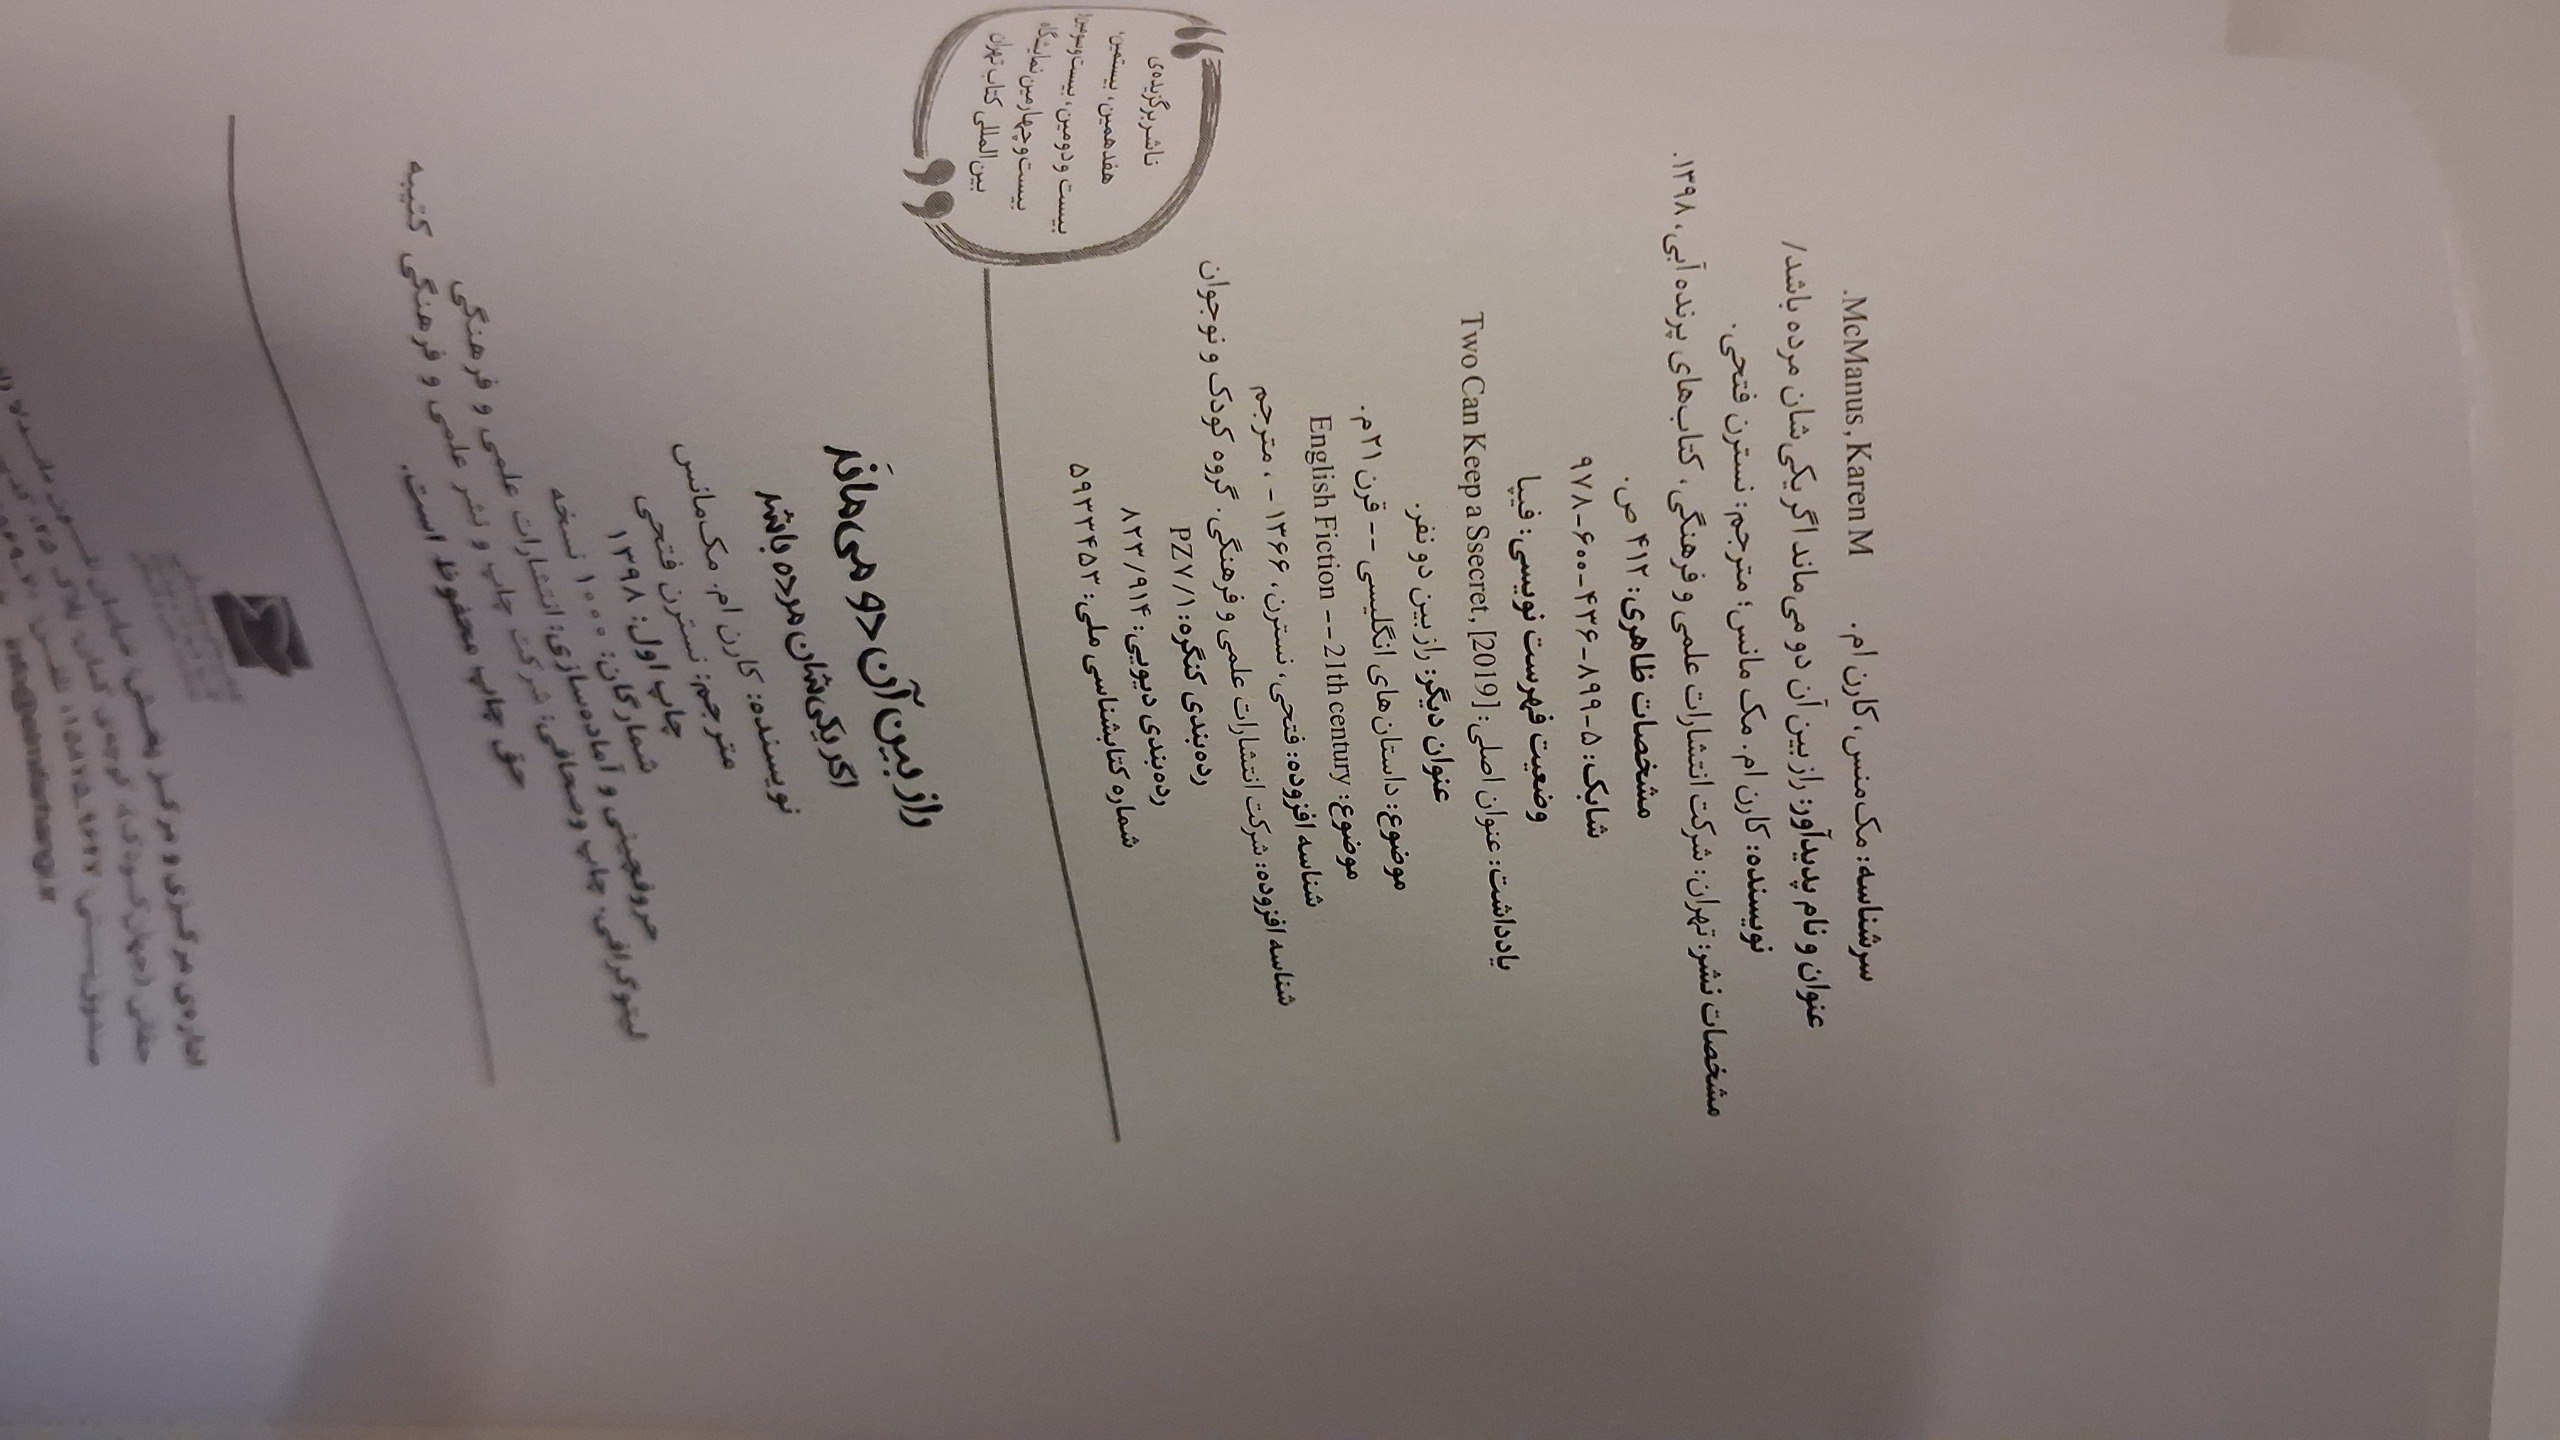 سرشناسه: مک‌منس، کارن ام. McManus, Karen M.
عنوان و نام پدیدآور: راز بین آن دو می‌ماند اگر یکی‌شان مرده باشد/
نویسنده: کارن ام. مک مانس؛ مترجم: نسترن فتحی.
مشخصات نشر: تهران: شرکت انتشارات علمی و فرهنگی، کتاب‌های پرنده آبی، ۱۳۹۸.
مشخصات ظاهری: ۴۱۲ ص.
شابک: ۵-۸۹۹-۴۳۶-۶۰۰-۹۷۸
وضعیت فهرست نویسی: فیپا
یادداشت: عنوان اصلی: Two Can Keep a Ssecret, [2019]
عنوان دیگر: راز بین دو نفر.
موضوع: داستان‌های انگلیسی -- قرن ۲۱م.
موضوع: English Fiction -- 21th century
شناسه افزوده: فتحی، نسترن، ۱۳۶۶ - ، مترجم
شناسه افزوده: شرکت انتشارات علمی و فرهنگی. گروه کودک و نوجوان
رده‌بندی کنگره: PZ۷/۱
رده‌بندی دیویی: ۸۲۳/۹۱۴
شماره کتابشناسی ملی: ۵۹۳۳۴۵۳
ناشر برگزیده‌ی
هفدهمین، بیستمین،
بیست و دومین، بیست و سومین،
بیست و چهارمین نمایشگاه
بین‌المللی کتاب تهران
راز بین آن دو می‌ماند
اگر یکی‌شان مرده باشد
نویسنده: کارن ام. مک‌مانس
مترجم: نسترن فتحی
چاپ اول: ۱۳۹۸
شمارگان: ۱۰۰۰ نسخه
حروفچینی و آماده‌سازی: انتشارات علمی و فرهنگی
لیتوگرافی، چاپ و صحافی: شرکت چاپ و نشر علمی و فرهنگی کتیبه
حق چاپ محفوظ است.
اداره‌ی مرکزی و مرکز پخش: خیابان